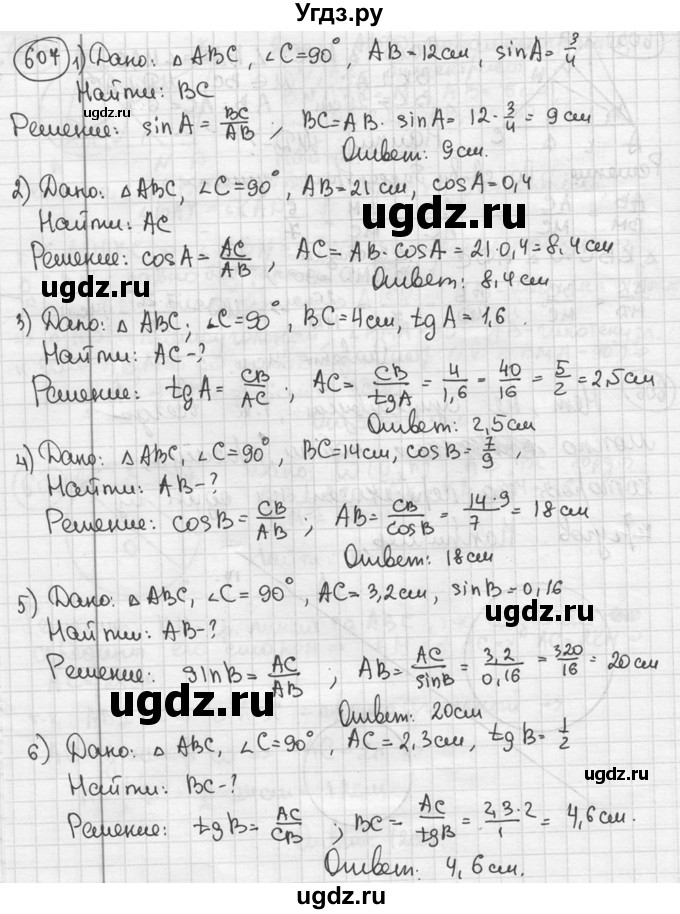 Угдз.ру
607 1) Дано: △ ABC, ∠C=90°, AB=12см, sinA=3/4
Найти: BC
Решение: sinA = BC/AB; BC=AB·sinA=12·3/4=9см
Ответ: 9см.
2) Дано: △ABC, ∠C=90°, AB=21см, cosA=0,4
Найти: AC
Решение: cosA=AC/AB, AC=AB·cosA=21·0,4=8,4см
Ответ: 8,4см
3) Дано: △ ABC; ∠C=90°, BC=4см, tgA=1,6.
Найти: AC-?
Решение: tgA=CB/AC; AC=CB/tgA=4/1,6=40/16=5/2=2,5см
Ответ: 2,5см
4) Дано: △ABC, ∠C=90°, BC=14см, cosB=7/9,
Найти: AB-?
Решение: cosB=CB/AB; AB=CB/cosB=14·9/7=18см
Ответ: 18см
5) Дано: △ABC, ∠C=90°, AC=3,2см, sinB=0,16
Найти: AB-?
Решение: sinB=AC/AB; AB=AC/sinB=3,2/0,16=320/16=20см
Ответ: 20см
6) Дано: △ ABC, ∠C=90°, AC=2,3см, tgB=1/2
Найти: BC-?
Решение: tgB=AC/CB; BC=AC/tgB=2,3·2/1=4,6см.
Ответ: 4,6см.
ugdz.ru
ugdz.ru
ugdz.ru
ugdz.ru
ugdz.ru
ugdz.ru
ugdz.ru
ugdz.ru
ugdz.ru
ugdz.ru